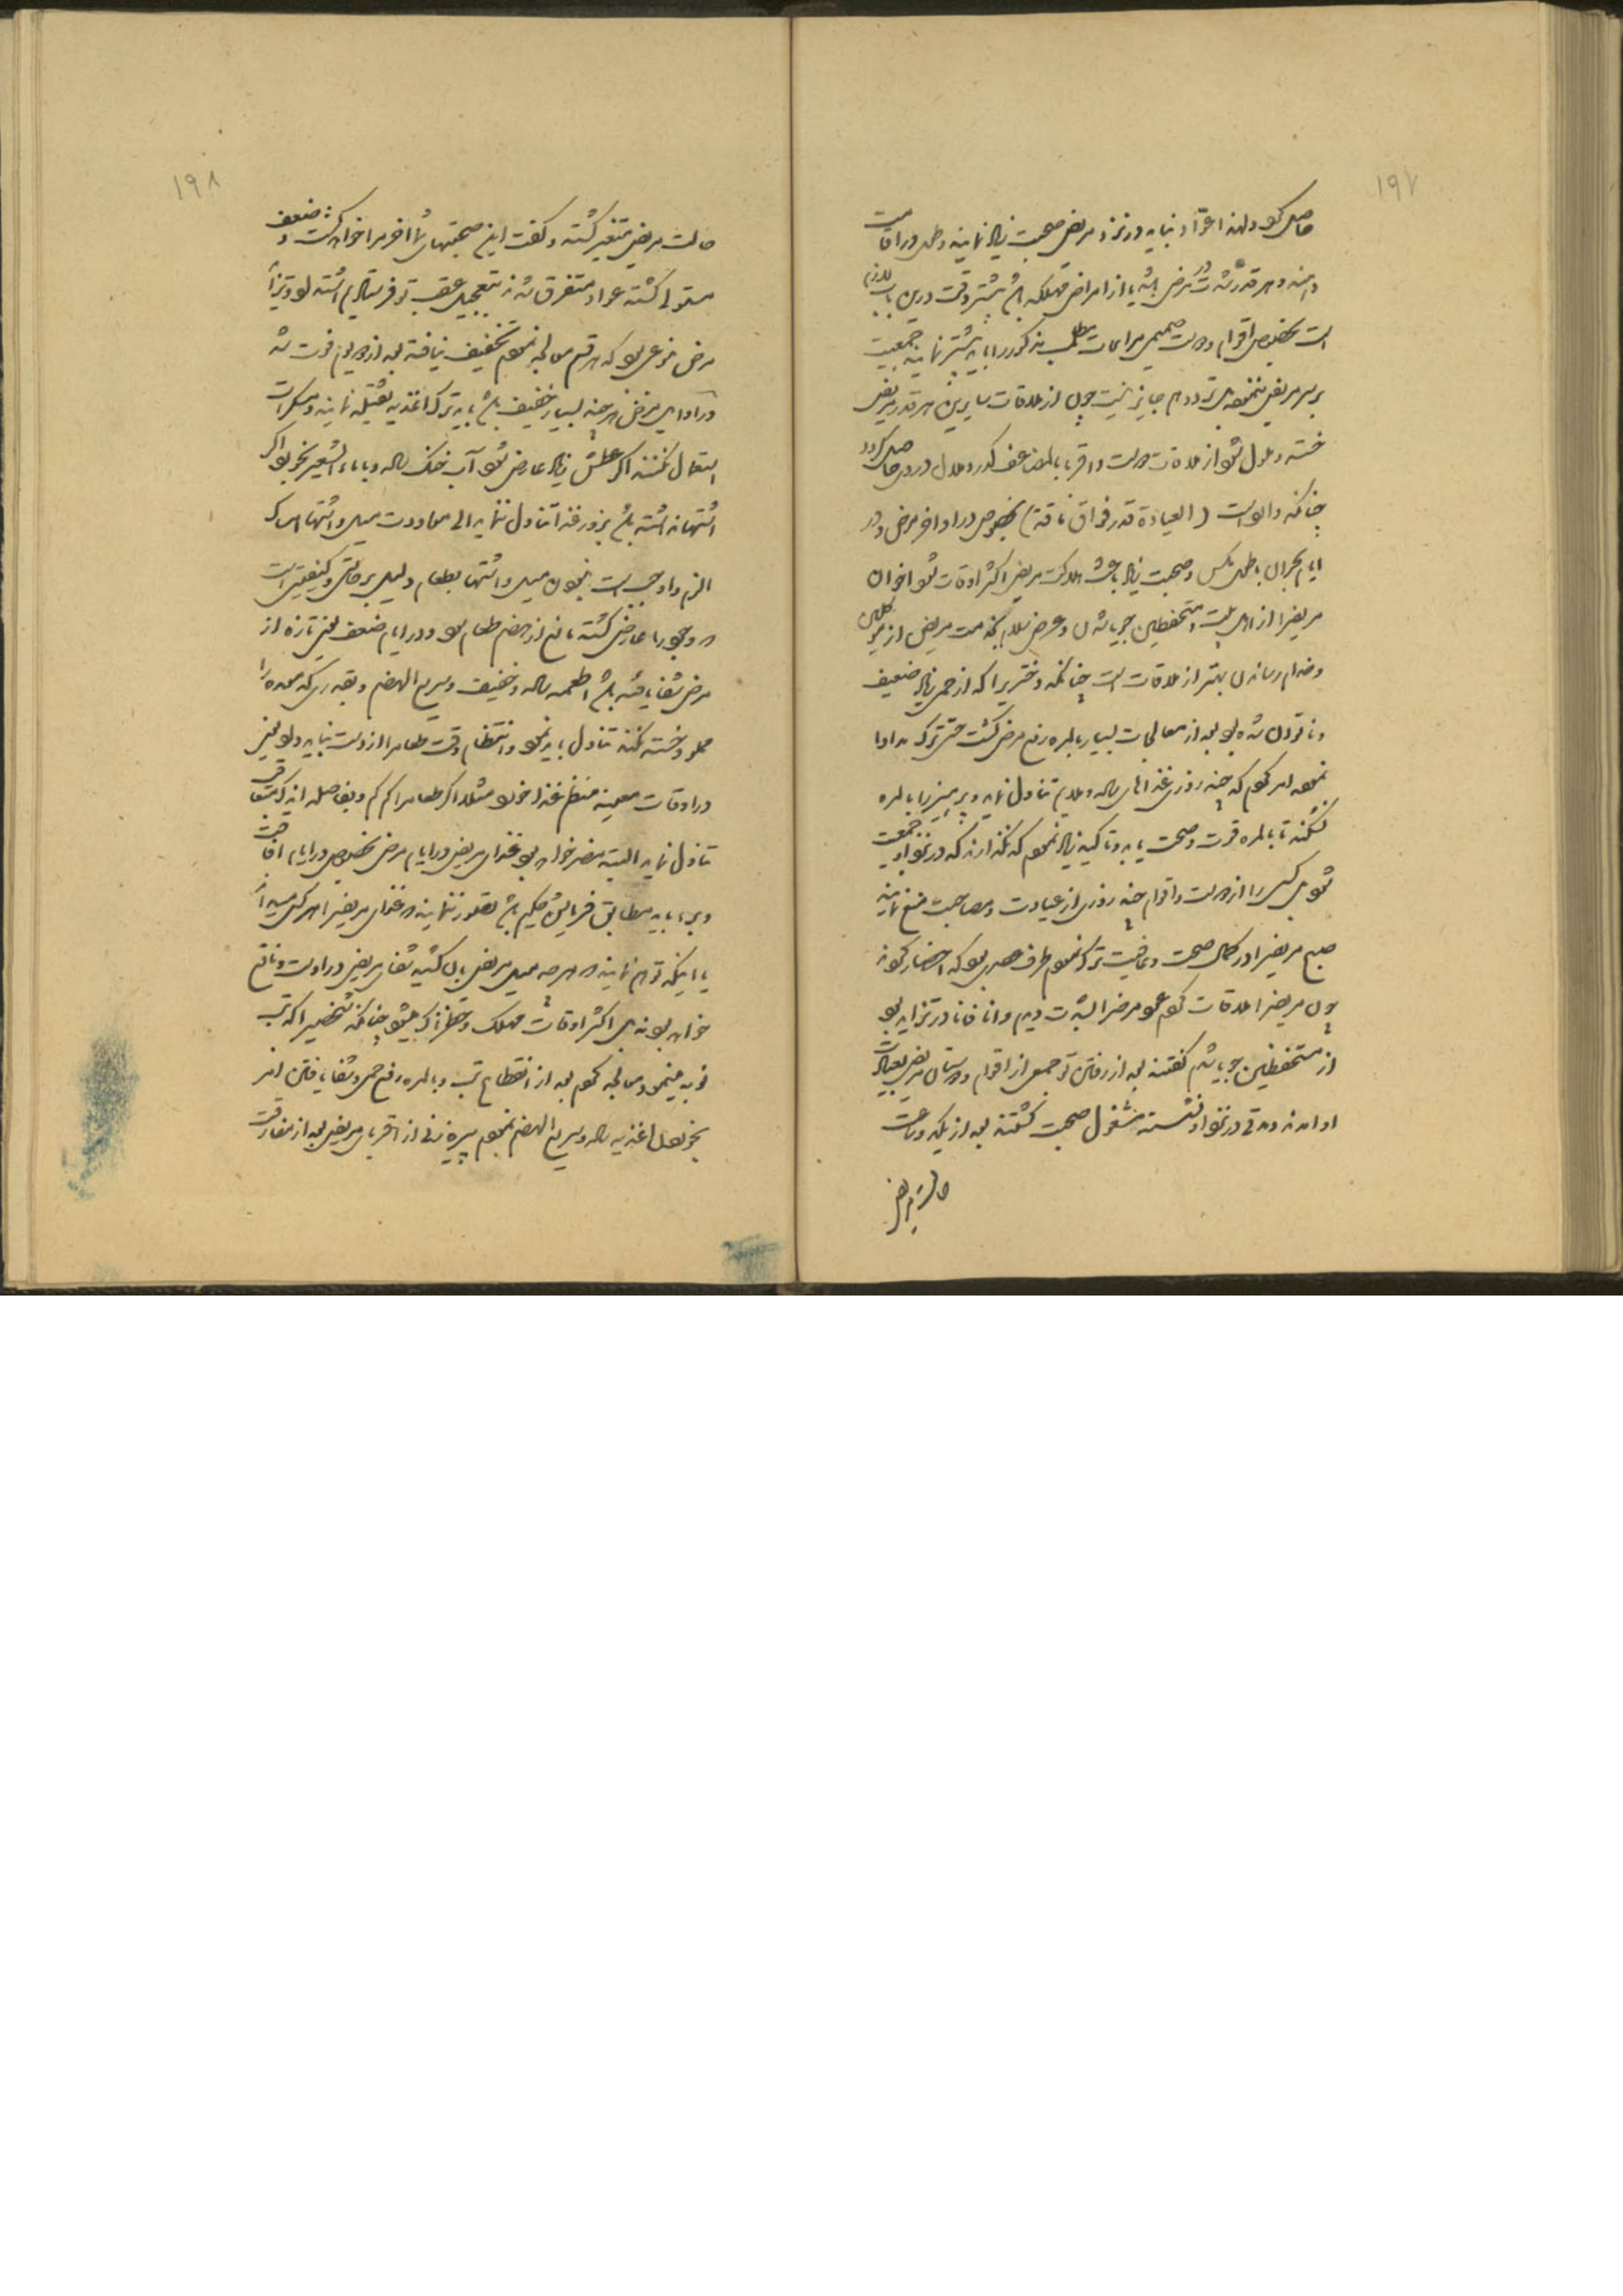 ۱۹۷
حاصل کو ولهذا عوّاد نباید در نزد مریض صحبت زیاد نمایند و طول در اقامت
دهند و هر قدر شدت مرض باشد یا از امراض مهلکه باشد بیشتر وقت درین باب لازم
است بخصوص اقوام و دوست صمیمی مراعات مطلب مذکور را باید بیشتر نمایند جمعیت
بر سر مریض ننموده تردد هم جایز نیست چون از ملاقات سایرین هر قدر مریض
خسته و ملول شود از ملاقات دوست و اقربا بالمضاعف کدر و ملال در وی حاصل گردد
چنانکه وارد است (العیادة قدر فواق ناقة) بخصوص در اواخر مرض و در
ایام بحران طول مکث و صحبت زیاد باعث هلاکت مریض اکثر اوقات شود احوال
مریض را از اهل بیت و مستحفظین جویا شدن و عرض سلام به سمت مریض از
و خدام رسانیدن بهتر از ملاقات است چنانکه دختریرا که از حمی زیاد ضعیف
و ناتوان شده بود بعد از معالجات بسیار بالمره رفع مرض گشت حتی ترک مداوا
نموده امر کردم که چند روزی غذاهای ساده و ملایم تناول نماید و پرهیز را بالمره
نشکند تا بالمره قوت و صحت یابد و تاکید زیاد نمودم که نگذارند که در نزد او جمعیت
شود کسی را از دوست و اقوام چند روزی از عیادت و مصاحبت منع نمایند
صبح مریض را در کمال صحت و عافیت ترک نموده طرف عصر بود که احضار کردند
چون مریض را ملاقات کردم عود مرض را بشدت دیدم و آنا فآنا در تزاید بود
از مستحفظین جویا شدم گفتند بعد از رفتن تو جمعی از اقوام و دوستان مریض بعیادت
او آمدند و مدتی در نزد او نشسته مشغول صحبت گشتند بعد از یکدو ساعت
حالت مریض
۱۹۸
حالت مریض متغیر گشته و گفت این صحبتهای شما آخر مرا خواهد کشت و ضعف
مستولی گشته عواد متفرق شدند بتعجیل عقب تو فرستادیم
مرض نوعی بود که هر قسم معالجه نمودم تخفیف نیافته بعد از دو یوم فوت شد
و در ادامه مرض هر چند بسیار خفیف باشد باید ترک اغذیه ثقیله نمایند و مسکرات
استعمال نکنند اگر عطش زیاد عارض شود آب خنک ساده و یا ماء الشعیر بخورد و اگر
اشتها نداشته باشد بزور غذا تناول ننماید الی معاودت میل و اشتها امساک
الزم و اوجب است نبودن میل و اشتها بطعام دلیل بر حالتی و کیفیتی است
که وجود را عارض گشته مانع از هضم طعام بود و در ایام ضعف یعنی تازه از
مرض شفا یافته باشد اطعمه ساده و خفیف و سریع الهضم و بقدری که معده را
مملو و خسته نکند تناول باید نمود و انتظام وقت طعام را از دست نباید داد یعنی
در اوقات معینه منظم غذا خورد مثلا اگر طعام را کم کم و بفاصله اندک متعاقب
تناول نماید البته مضر خواهد بود غذای مریض در ایام مرض بخصوص در ایام افاقت
و برء باید مطابق فرمایش حکیم باشد تصور ننمایند که غذای مریض را هر کس میداند
یا اینکه توهم نمایند که هر چه میل مریض بآن کشید شفای مریض در اوست و نافع
خواهد بود نه بلکه اکثر اوقات مهلک و خطرناک میشود چنانکه شخصیرا که تب
نوبه مینمود معالجه کردم بعد از انقطاع تب و بالمره رفع حمی و شفا یافتن امر
بخوردن اغذیه ساده و سریع الهضم نمودم پیره زنی از اقربای مریض بعد از مفارقت